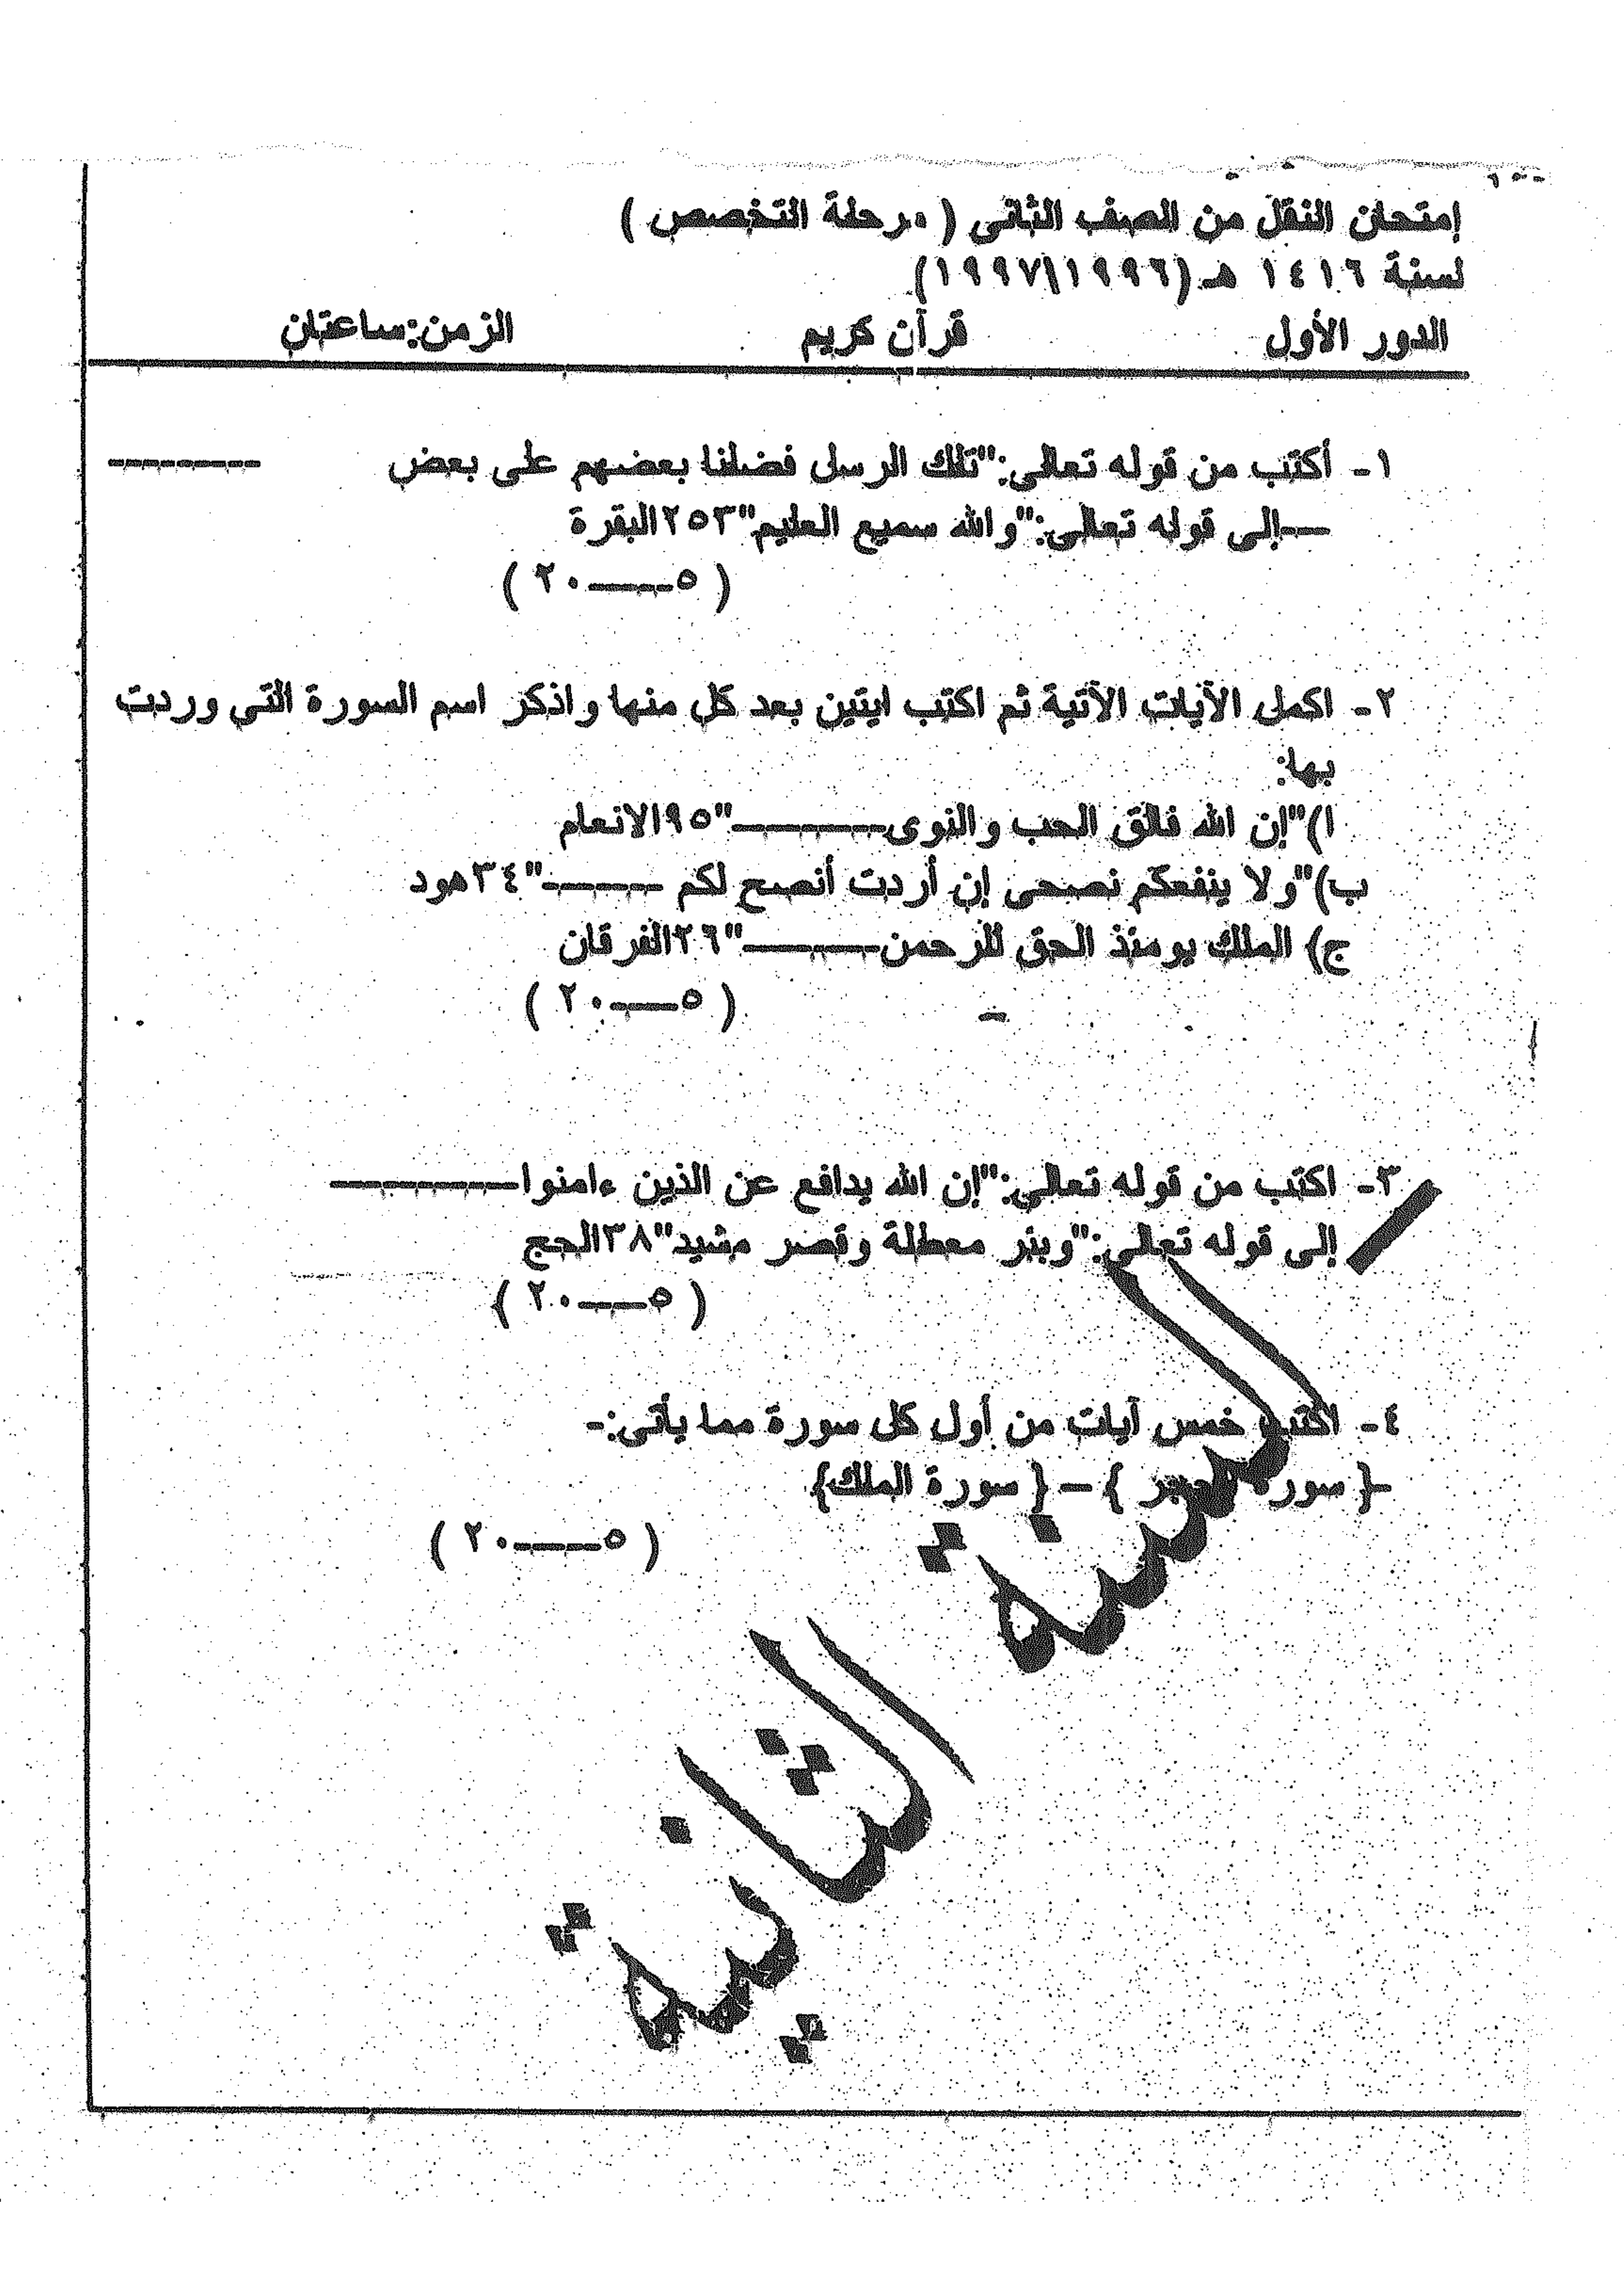 إمتحان النقل من الصف الثانى ( مرحلة التخصص )
لسنة ١٤١٦ هـ (١٩٩٧/١٩٩٦)
الدور الأول قرآن كريم الزمن:ساعتان
١- أكتب من قوله تعالى:"تلك الرسل فضلنا بعضهم على بعض ---------
—إلى قوله تعالى:"والله سميع العليم"٢٥٣البقرة
( ٥——٢٠ )
٢- اكمل الآيات الآتية ثم اكتب ايتين بعد كل منها واذكر اسم السورة التي وردت
بها:
ا)"إن الله فالق الحب والنوى————"٩٥الانعام
ب)"ولا ينفعكم نصحى إن أردت أنصح لكم ———-"٣٤هود
ج) الملك يومئذ الحق للرحمن————"٢٦الفرقان
( ٥——٢٠ )
٣- اكتب من قوله تعالى:"إن الله يدافع عن الذين ءامنوا—————
إلى قوله تعالى:"وبئر معطلة وقصر مشيد"٣٨الحج
( ٥——٢٠ )
٤- اكتب خمس آيات من أول كل سورة مما يأتى:-
-{ سورة الحجر } — { سورة الملك}
( ٥——٢٠ )
السنة الثانية